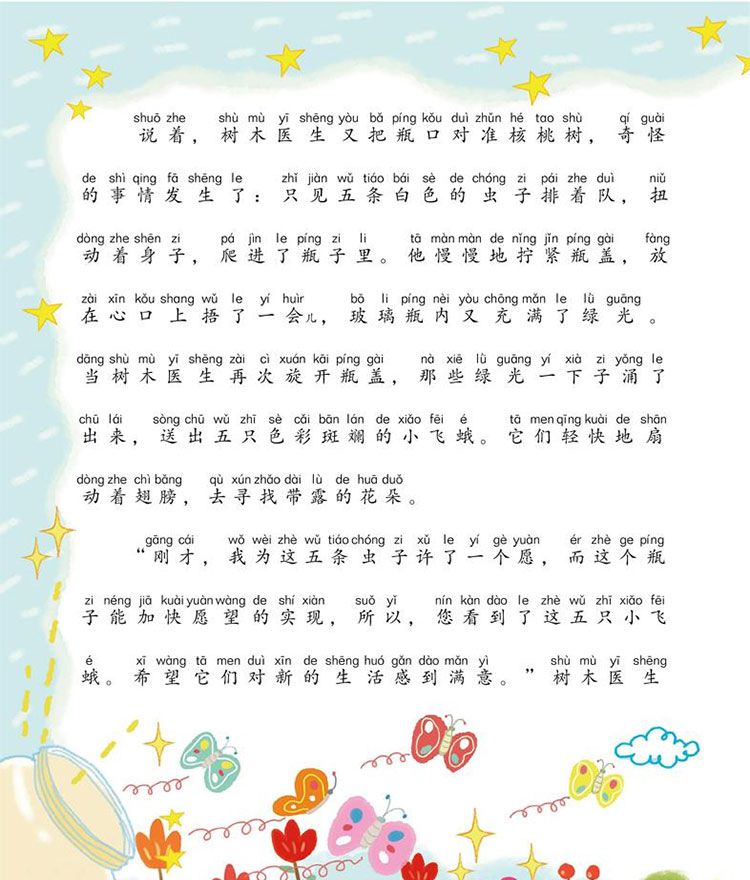 shuō zhe shù mù yī shēng yòu bǎ píng kǒu duì zhǔn hé tao shù qí guài
说着，树木医生又把瓶口对准核桃树，奇怪
de shì qing fā shēng le zhǐ jiàn wǔ tiáo bái sè de chóng zi pái zhe duì niǔ
的事情发生了：只见五条白色的虫子排着队，扭
dòng zhe shēn zi pá jìn le píng zi li tā màn màn de nǐng jǐn píng gài fàng
动着身子，爬进了瓶子里。他慢慢地拧紧瓶盖，放
zài xīn kǒu shang wǔ le yí huìr bō li píng nèi yòu chōng mǎn le lǜ guāng
在心口上捂了一会儿，玻璃瓶内又充满了绿光。
dāng shù mù yī shēng zài cì xuán kāi píng gài nà xiē lǜ guāng yí xià zi yǒng le
当树木医生再次旋开瓶盖，那些绿光一下子涌了
chū lái sòng chū wǔ zhī sè cǎi bān lán de xiǎo fēi é tā men qīng kuài de shān
出来，送出五只色彩斑斓的小飞蛾。它们轻快地扇
dòng zhe chì bǎng qù xún zhǎo dài lù de huā duǒ
动着翅膀，去寻找带露的花朵。
gāng cái wǒ wèi zhè wǔ tiáo chóng zi xǔ le yí gè yuàn ér zhè ge píng
“刚才，我为这五条虫子许了一个愿，而这个瓶
zi néng jiā kuài yuàn wàng de shí xiàn suǒ yǐ nín kàn dào le zhè wǔ zhī xiǎo fēi
子能加快愿望的实现，所以，您看到了这五只小飞
é xī wàng tā men duì xīn de shēng huó gǎn dào mǎn yì shù mù yī shēng
蛾。希望它们对新的生活感到满意。”树木医生